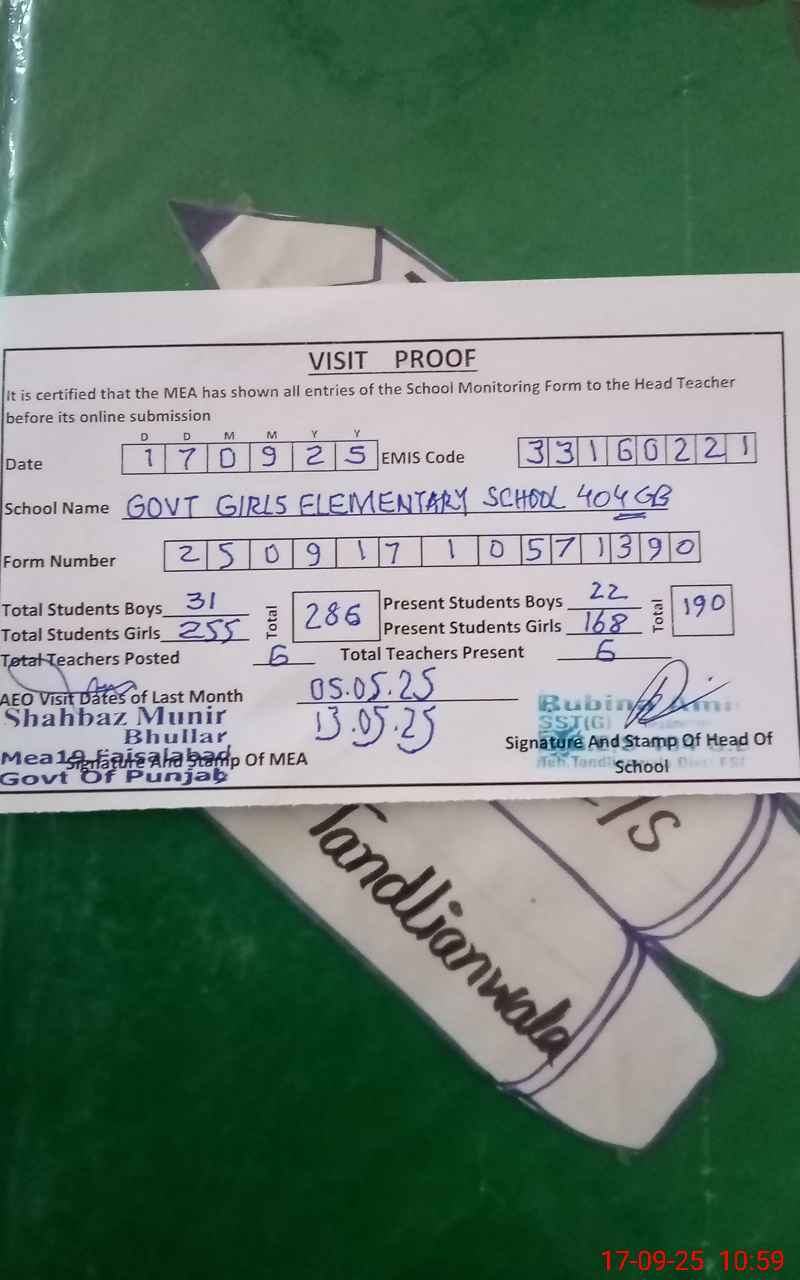 VISIT PROOF
It is certified that the MEA has shown all entries of the School Monitoring Form to the Head Teacher
before its online submission
D D M M Y Y
Date 1 7 0 9 2 5 EMIS Code 3 3 1 6 0 2 2 1
School Name GOVT GIRLS ELEMENTARY SCHOOL 404 GB
Form Number 2 5 0 9 1 7 1 0 5 7 1 3 9 0
Total Students Boys 31 Present Students Boys 22
Total 286 Total 190
Total Students Girls 255 Present Students Girls 168
Total Teachers Posted 6 Total Teachers Present 6
AEO Visit Dates of Last Month 05.05.25
13.05.25
Shahbaz Munir
Bhullar
Mea19 Faisalabad
Govt Of Punjab
Signature And Stamp Of MEA
Rubina
SST(G)
Signature And Stamp Of Head Of
School
Tandlianwala
17-09-25 10:59